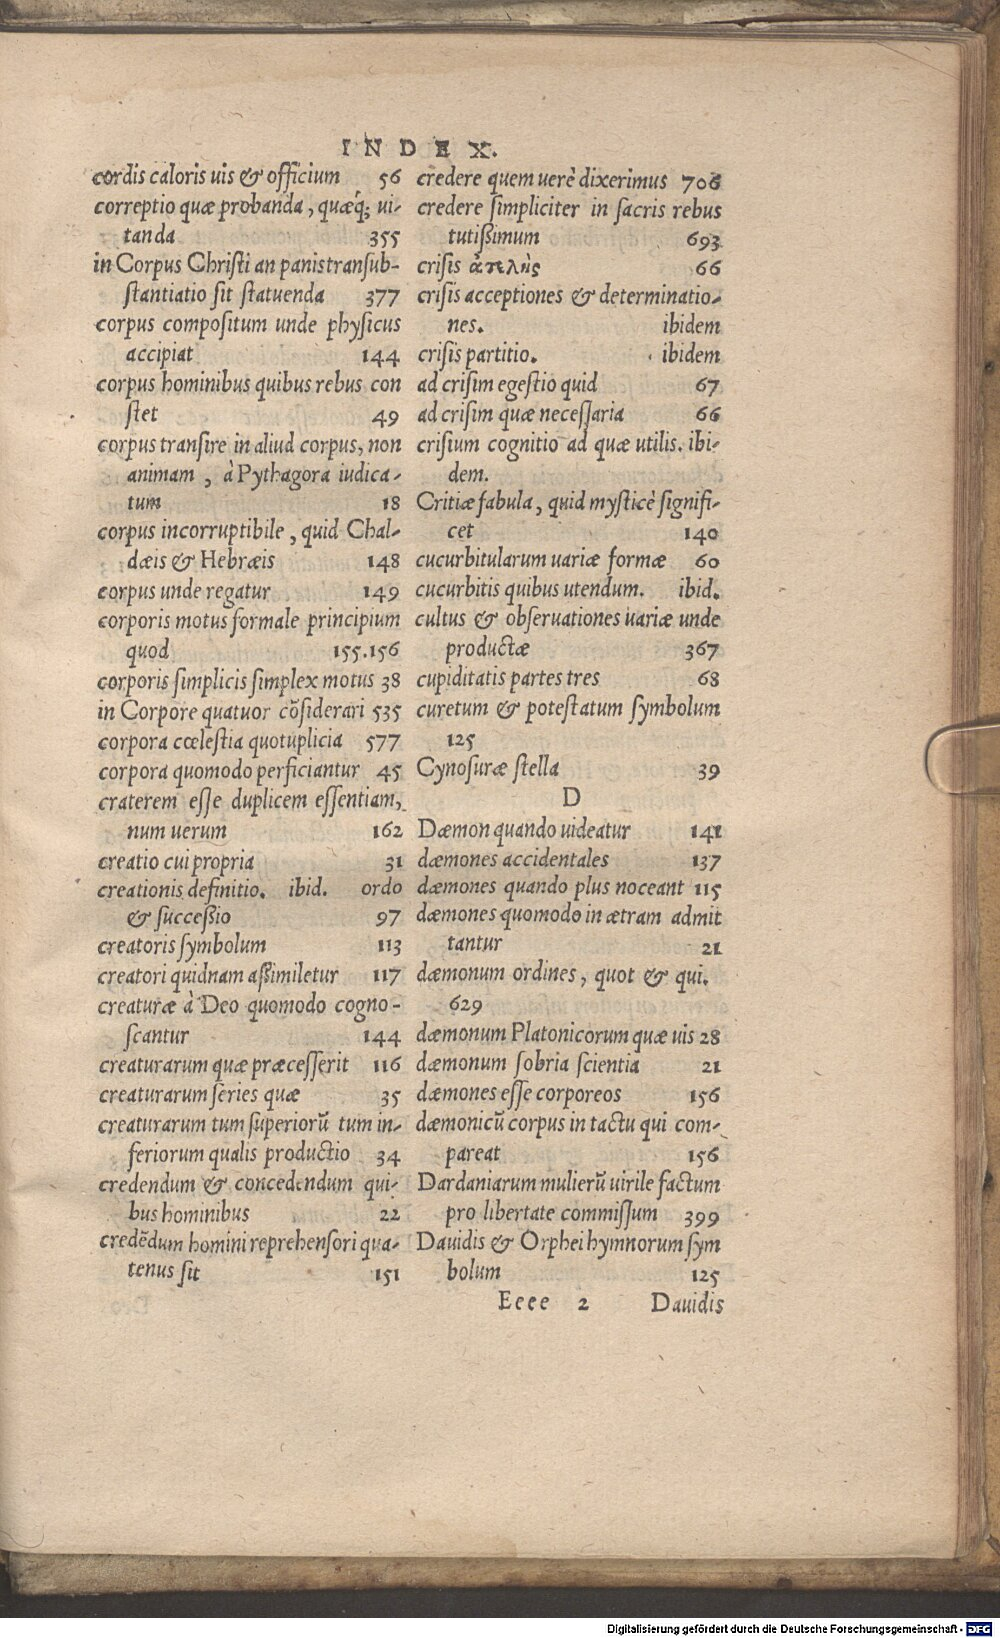 INDEX.
cordis caloris uis & officium 56
correptio quæ probanda, quæq́; ui-
tanda 355
in Corpus Christi an panis transub-
stantiatio sit statuenda 377
corpus compositum unde physicus
accipiat 144
corpus hominibus quibus rebus con
stet 49
corpus transire in aliud corpus, non
animam, à Pythagora iudica-
tum 18
corpus incorruptibile, quid Chal-
dæis & Hebræis 148
corpus unde regatur 149
corporis motus formale principium
quod 155.156
corporis simplicis simplex motus 38
in Corpore quatuor cõsiderari 535
corpora cœlestia quotuplicia 577
corpora quomodo perficiantur 45
craterem esse duplicem essentiam,
num uerum 162
creatio cui propria 31
creationis definitio. ibid. ordo
& successio 97
creatoris symbolum 113
creatori quidnam assimiletur 117
creaturæ à Deo quomodo cogno-
scantur 144
creaturarum quæ præcesserit 116
creaturarum series quæ 35
creaturarum tum superiorũ tum in-
feriorum qualis productio 34
credendum & concedendum qui-
bus hominibus 22
credẽdum homini reprehensori qua-
tenus sit 151
credere quem uerè dixerimus 706
credere simpliciter in sacris rebus
tutissimum 693
crisis ἀτελὴς 66
crisis acceptiones & determinatio-
nes. ibidem
crisis partitio. ibidem
ad crisim egestio quid 67
ad crisim quæ necessaria 66
crisium cognitio ad quæ utilis. ibi-
dem.
Critiæ fabula, quid mysticè signifi-
cet 140
cucurbitularum uariæ formæ 60
cucurbitis quibus utendum. ibid.
cultus & obseruationes uariæ unde
productæ 367
cupiditatis partes tres 68
curetum & potestatum symbolum
125
Cynosuræ stella 39
D
Dæmon quando uideatur 141
dæmones accidentales 137
dæmones quando plus noceant 115
dæmones quomodo in ætram admit
tantur 21
dæmonum ordines, quot & qui.
629
dæmonum Platonicorum quæ uis 28
dæmonum sobria scientia 21
dæmones esse corporeos 156
dæmonicũ corpus in tactu qui com-
pareat 156
Dardaniarum mulierũ uirile factum
pro libertate commissum 399
Dauidis & Orphei hymnorum sym
bolum 125
Eeee 2 Dauidis
Digitalisierung gefördert durch die Deutsche Forschungsgemeinschaft - DFG